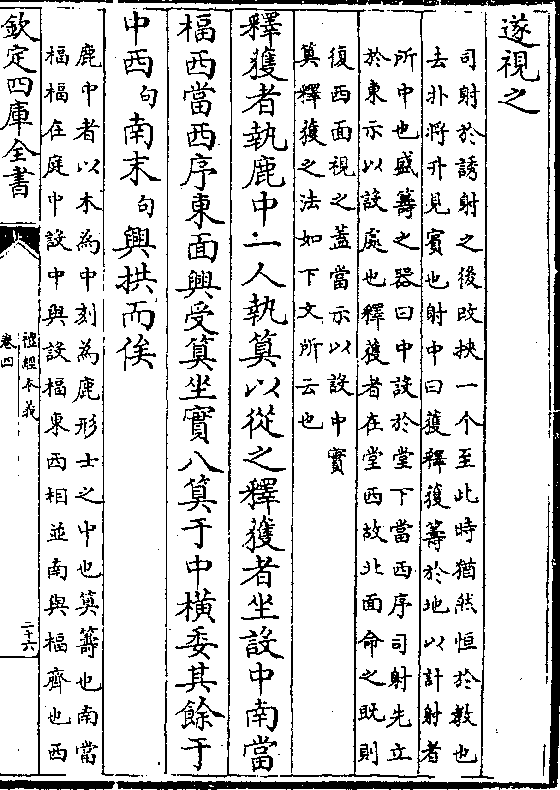 遂視之
司射於誘射之後改挾一个至此時猶然恒於教也
去扑將升見賔也射中曰獲釋獲籌於地以計射者
所中也盛籌之器曰中設於堂下當西序司射先立
於東示以設處也釋獲者在堂西故北面命之既則
復西面視之蓋當示以設中實
筭釋獲之法如下文所云也
釋獲者執鹿中一人執筭以從之釋獲者坐設中南當
楅西當西序東面興受筭坐實八筭于中橫委其餘于
中西句南末句興拱而俟
鹿中者以木為中刻為鹿形士之中也筭籌也南當
楅楅在庭中設中與設楅東西相並南與楅齊也西
欽定四庫全書
禮經本義
卷四
二十六